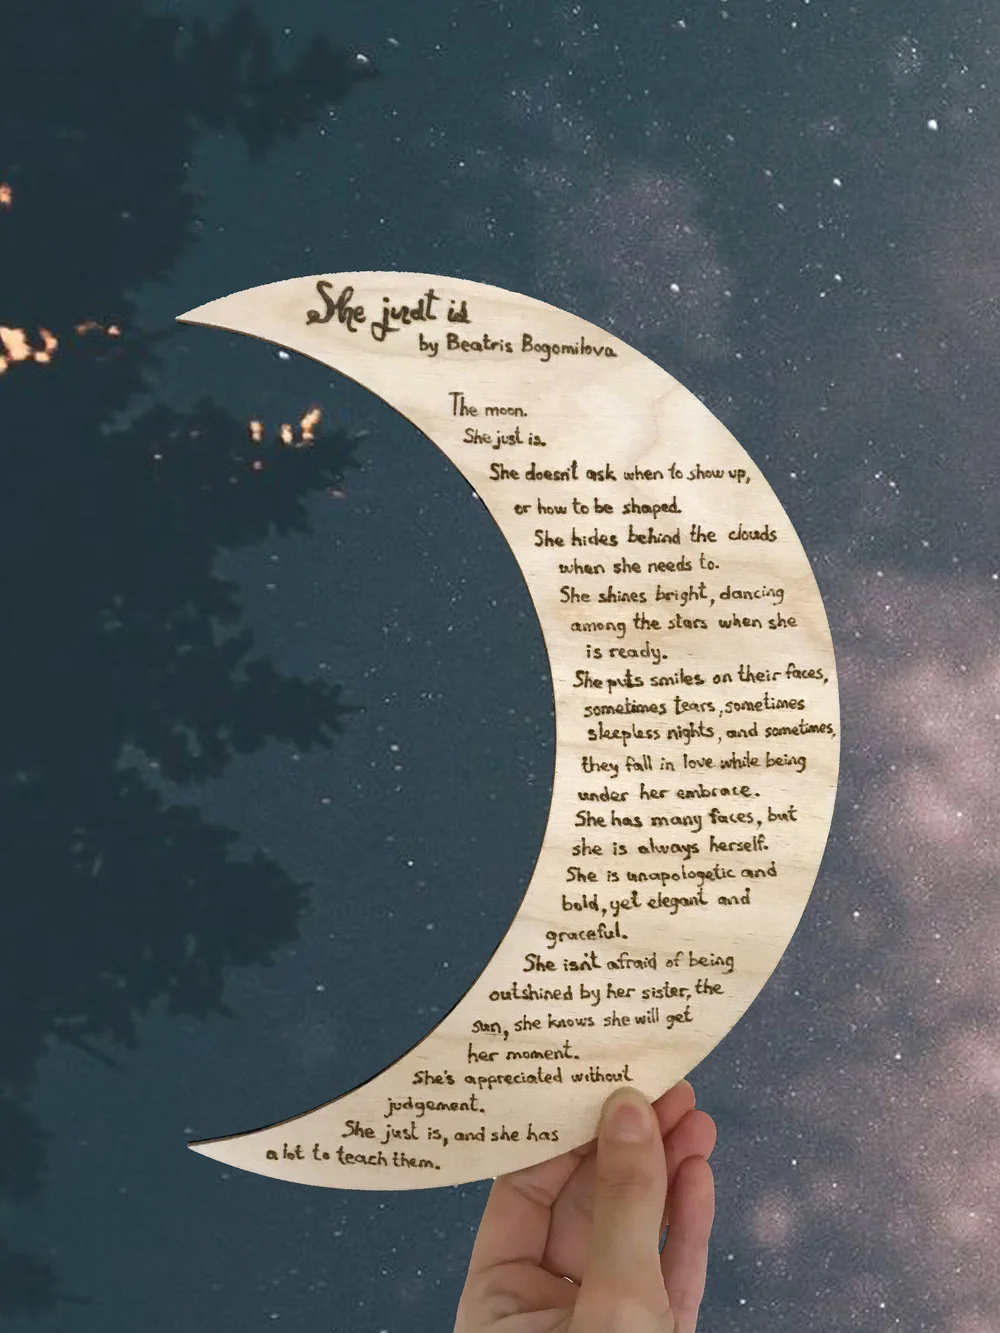 She just is
by Beatris Bogomilova
The moon.
She just is.
She doesn't ask when to show up,
or how to be shaped.
She hides behind the clouds
when she needs to.
She shines bright, dancing
among the stars when she
is ready.
She puts smiles on their faces,
sometimes tears, sometimes
sleepless nights, and sometimes,
they fall in love while being
under her embrace.
She has many faces, but
she is always herself.
She is unapologetic and
bold, yet elegant and
graceful.
She isn't afraid of being
outshined by her sister, the
sun, she knows she will get
her moment.
She's appreciated without
judgement.
She just is, and she has
a lot to teach them.